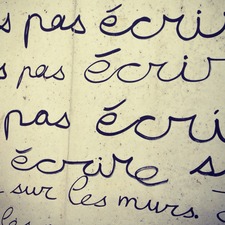 s pas écrir
s pas écrir
pas écri
écrire s
sur les murs. J
les